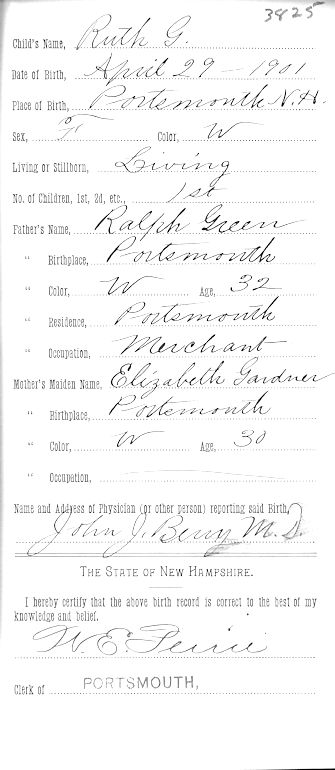 3825
Child's Name, Ruth G.
Date of Birth, April 29 - 1901
Place of Birth, Portsmouth N.H.
Sex, F Color, W
Living or Stillborn, Living
No. of Children, 1st, 2d, etc., 1st
Father's Name, Ralph Green
" Birthplace, Portsmouth
" Color, W Age, 32
" Residence, Portsmouth
" Occupation, Merchant
Mother's Maiden Name, Elizabeth Gardner
" Birthplace, Portsmouth
" Color, W Age, 30
" Occupation,
Name and Address of Physician (or other person) reporting said Birth,
John J. Berry M.D.
THE STATE OF NEW HAMPSHIRE.
I hereby certify that the above birth record is correct to the best of my
knowledge and belief.
W. E. Peirce
Clerk of PORTSMOUTH,